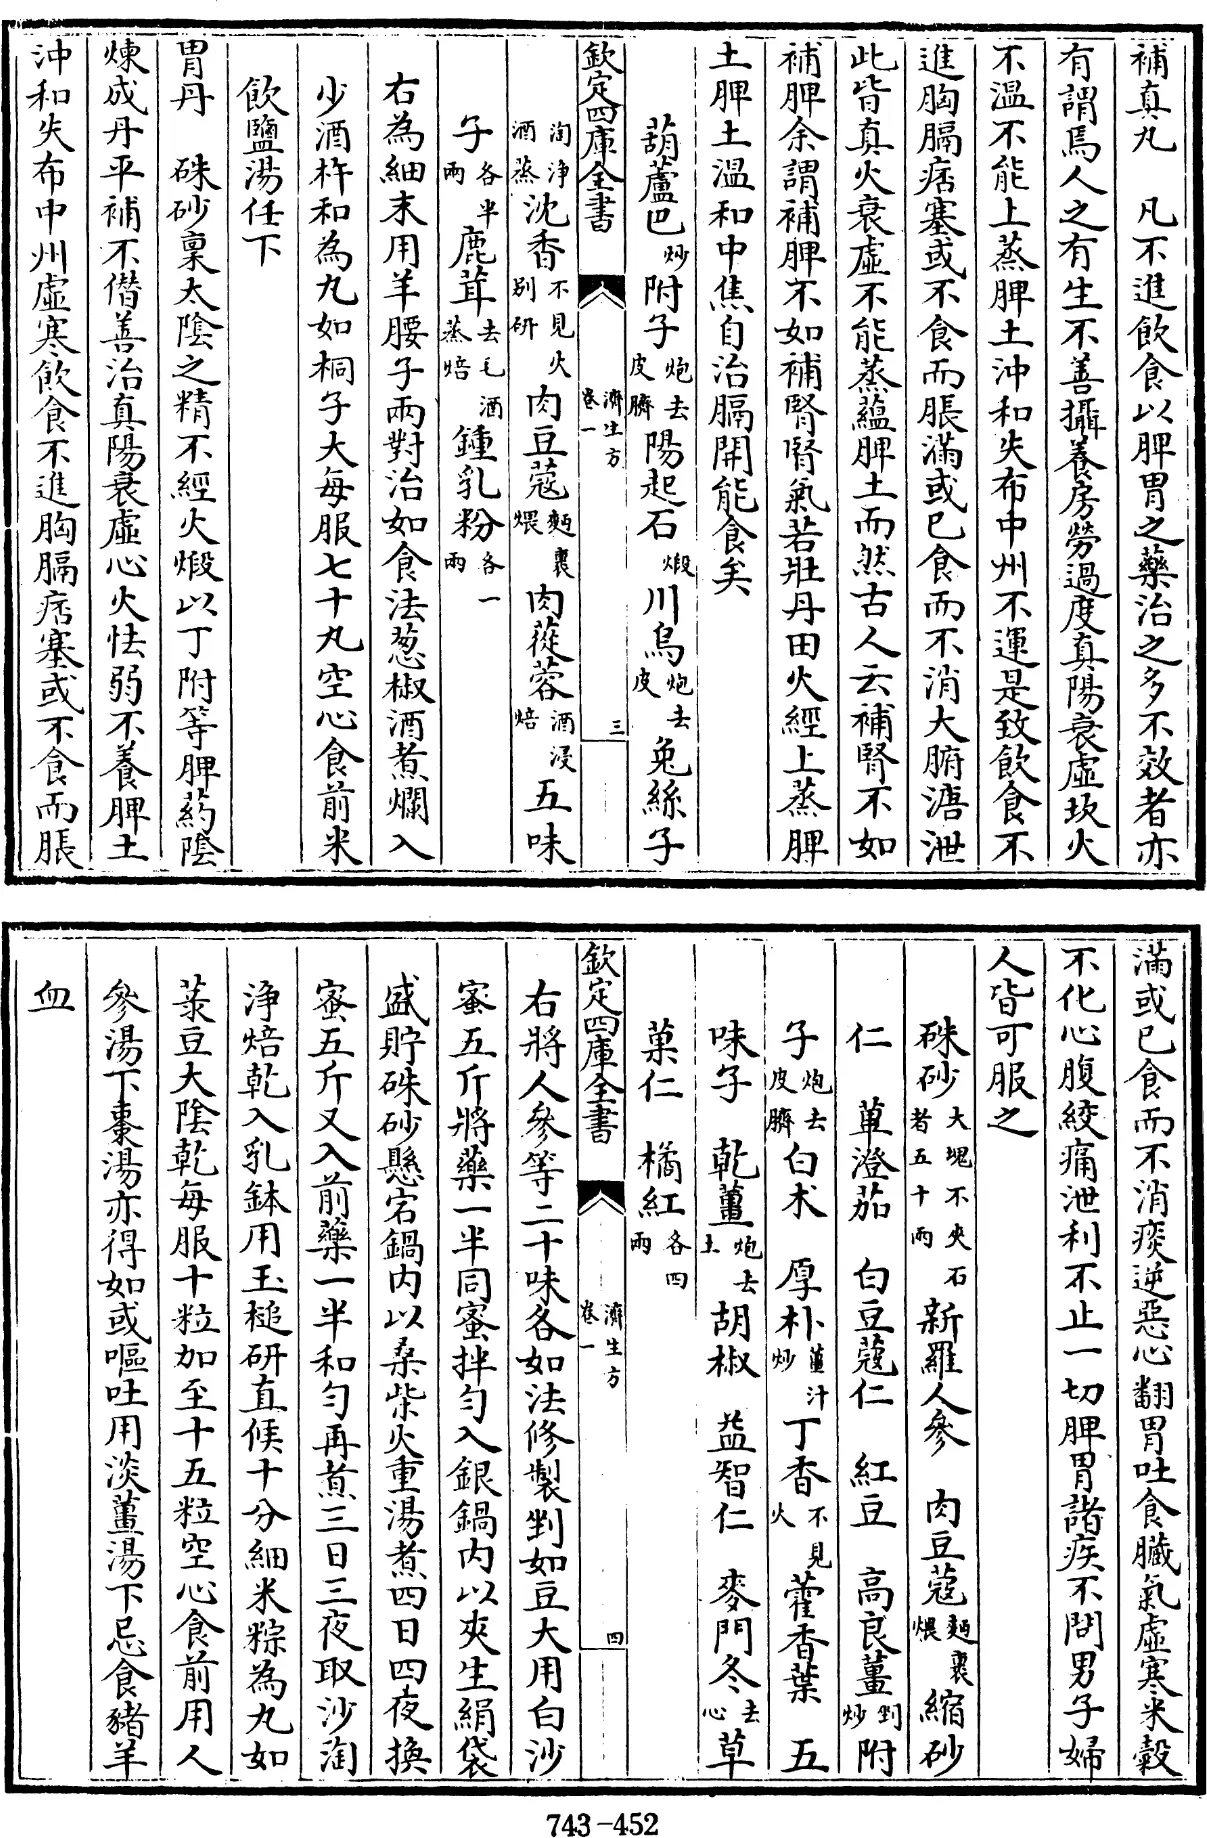 補真丸　凡不進飲食以脾胃之藥治之多不效者亦
有謂焉人之有生不善攝養房勞過度真陽衰虛坎火
不溫不能上蒸脾土沖和失布中州不運是致飲食不
進胸膈痞塞或不食而脹滿或已食而不消大腑溏泄
此皆真火衰虛不能蒸蘊脾土而然古人云補腎不如
補脾余謂補脾不如補腎腎氣若壯丹田火經上蒸脾
土脾土溫和中焦自治膈開能食矣
葫蘆巴炒附子炮去皮臍陽起石煅川烏炮去皮兔絲子
欽定四庫全書　濟生方卷一　三
淘淨酒蒸沈香不見火別研肉豆蔻麪裹煨肉蓯蓉酒浸焙五味
子各半兩鹿茸去毛酒蒸焙鍾乳粉各一兩
右為細末用羊腰子兩對治如食法葱椒酒煮爛入
少酒杵和為丸如桐子大每服七十丸空心食前米
飲鹽湯任下
胃丹　硃砂稟太陰之精不經火煅以丁附等脾葯陰
煉成丹平補不僭善治真陽衰虛心火怯弱不養脾土
沖和失布中州虛寒飲食不進胸膈痞塞或不食而脹
滿或已食而不消痰逆惡心翻胃吐食臟氣虛寒米穀
不化心腹絞痛泄利不止一切脾胃諸疾不問男子婦
人皆可服之
硃砂大塊不夾石者五十兩新羅人參　肉豆蔻麪裹煨縮砂
仁　蓽澄茄　白豆蔻仁　紅豆　高良薑剉炒附
子炮去皮臍白朮　厚朴薑汁炒丁香不見火藿香葉　五
味子　乾薑炮去土胡椒　益智仁　麥門冬去心草
菓仁　橘紅各四兩
欽定四庫全書　濟生方卷一　四
右將人參等二十味各如法修製剉如豆大用白沙
蜜五斤將藥一半同蜜拌勻入銀鍋內以夾生絹袋
盛貯硃砂懸宕鍋內以桑柴火重湯煮四日四夜換
蜜五斤又入前藥一半和勻再煮三日三夜取沙淘
淨焙乾入乳鉢用玉槌研直候十分細米粽為丸如
菉豆大陰乾每服十粒加至十五粒空心食前用人
參湯下棗湯亦得如或嘔吐用淡薑湯下忌食豬羊
血
743-452